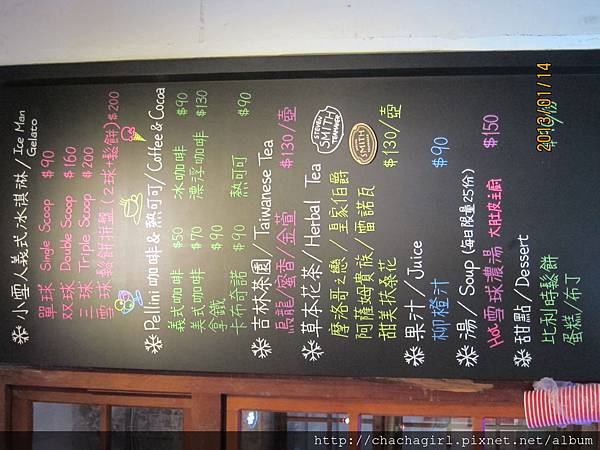 小雪人義式冰淇淋/Ice Man Gelato
單球 Single Scoop $90
双球 Double Scoop $160
三球 Triple Scoop $200
雪球鬆餅拼盤(2球+鬆餅) $200
Pellini咖啡&熱可可/Coffee & Cocoa
義式咖啡 $50 冰咖啡 $90
美式咖啡 $70 漂浮咖啡 $130
拿鐵 $90
卡布奇諾 $90 熱可可 $90
吉林茶園/Taiwanese Tea
烏龍/蜜香/金萱 $130/壺
草本花茶/Herbal Tea
STEVEN SMITH TEAMAKER
SMITH
摩洛哥之戀/皇家伯爵
阿薩姆貴族/雷諾瓦
甜美扶桑花 $130/壺
果汁/Juice
柳橙汁 $90
湯/Soup(每日限量25份)
Hot雪球濃湯 大肚皮主廚 $150
甜點/Dessert
比利時鬆餅
蛋糕/布丁
2013/01/14
http://chachagirl.pixnet.net/album